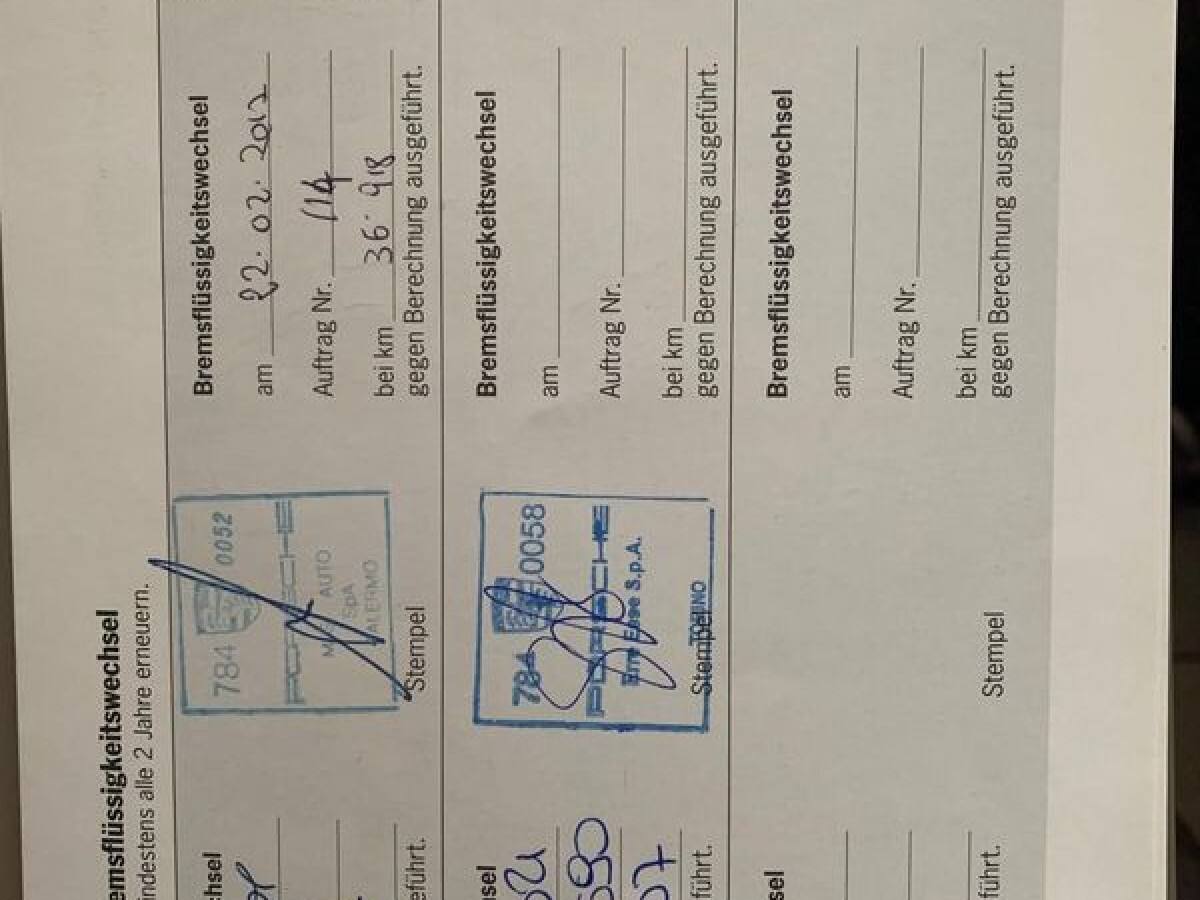 emsflüssigkeitswechsel
indestens alle 2 Jahre erneuern.
chsel
eführt.
784 0052
PORSCHE
AUTO
SpA
ALERMO
Stempel
Bremsflüssigkeitswechsel
am 22.02.2012
Auftrag Nr. 114
bei km 36.918
gegen Berechnung ausgeführt.
sel
07
führt.
784 0058
PORSCHE
S.p.A.
Stempel
Bremsflüssigkeitswechsel
am
Auftrag Nr.
bei km
gegen Berechnung ausgeführt.
sel
führt.
Stempel
Bremsflüssigkeitswechsel
am
Auftrag Nr.
bei km
gegen Berechnung ausgeführt.